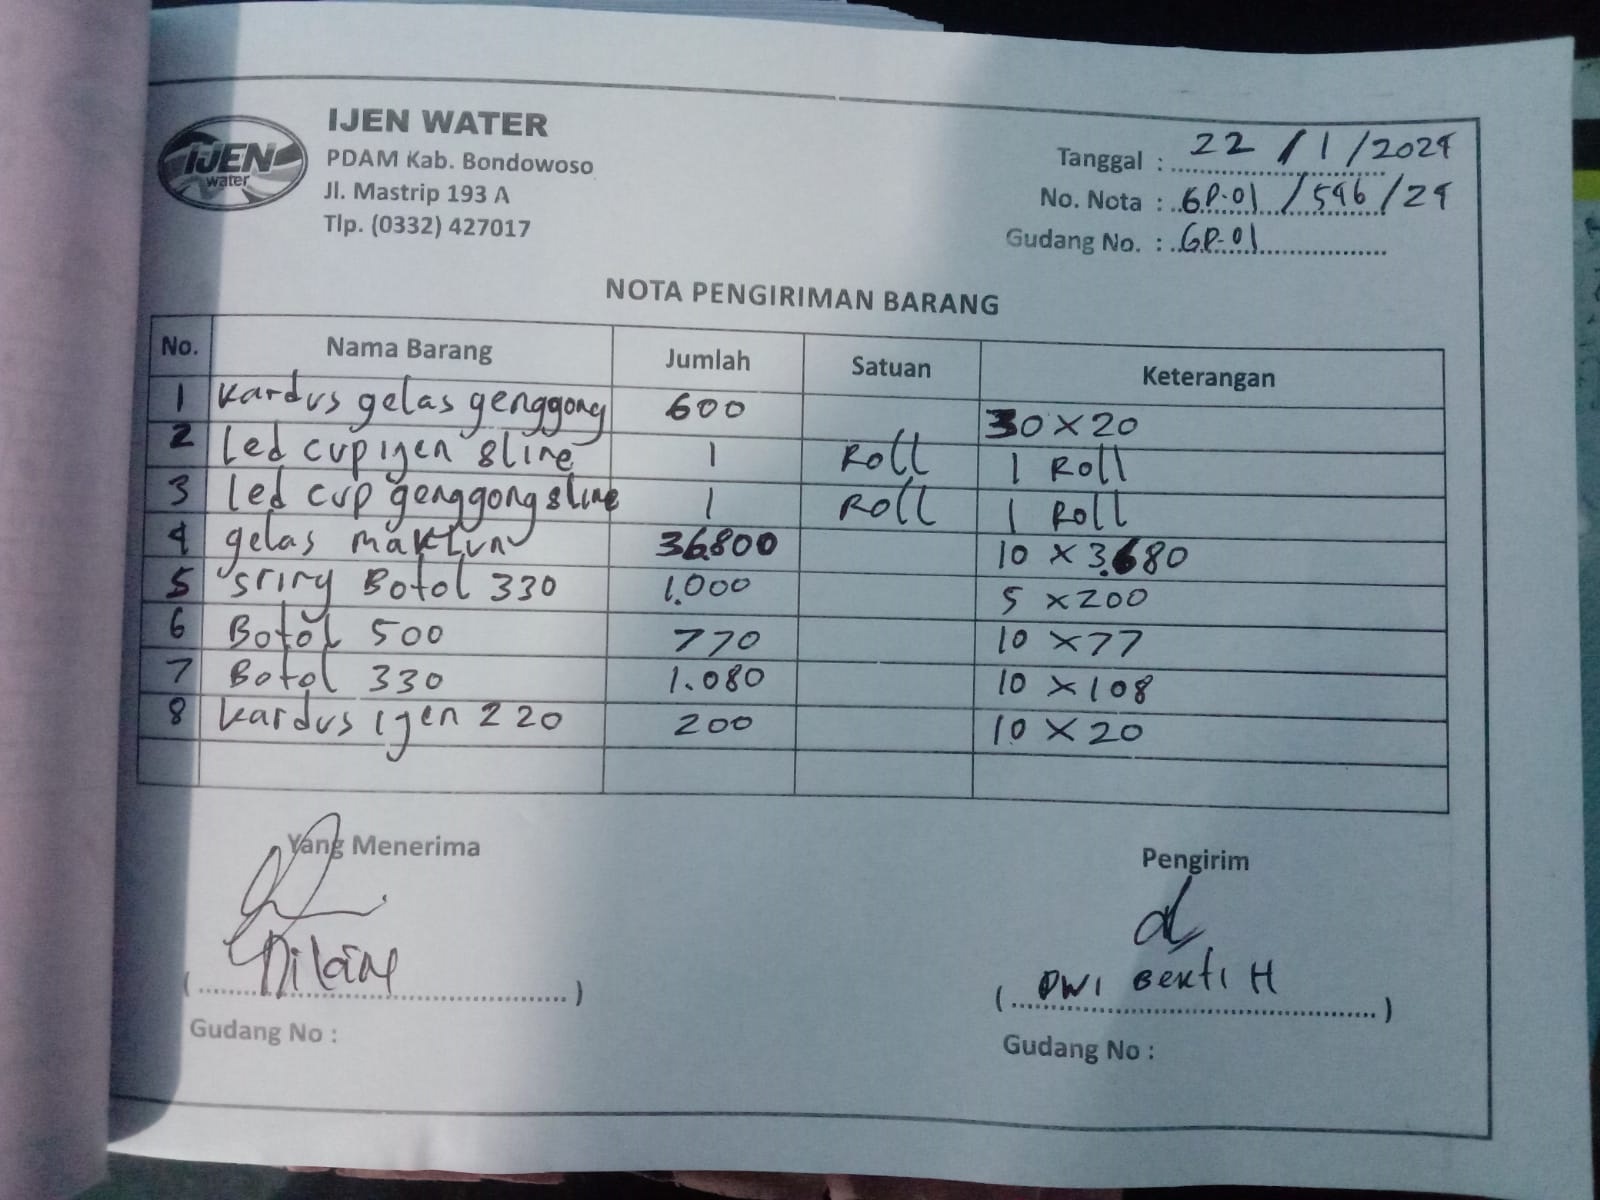 IJEN WATER
PDAM Kab. Bondowoso
Jl. Mastrip 193 A
Tlp. (0332) 427017
IJEN
water
Tanggal : 22 / 1 / 2024
No. Nota : GP-01 / 546 / 24
Gudang No. : GP-01
NOTA PENGIRIMAN BARANG
No. Nama Barang Jumlah Satuan Keterangan
1 Kardus gelas genggong 600 30 x 20
2 Led cup ijen sline 1 Roll 1 Roll
3 Led cup genggong sline 1 Roll 1 Roll
4 gelas maktun 36.800 10 x 3.680
5 sring Botol 330 1.000 5 x 200
6 Botol 500 770 10 x 77
7 Botol 330 1.080 10 x 108
8 Kardus ijen 220 200 10 x 20
Yang Menerima
Pengirim
( )
( DWI Bekti H )
Gudang No :
Gudang No :